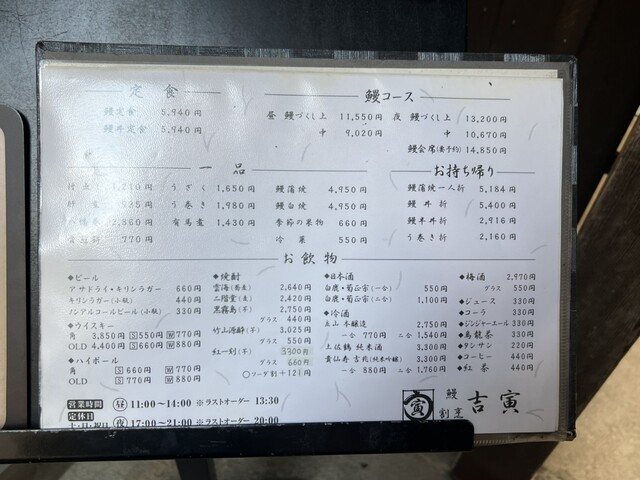 定食
鰻定食 5,940円
鰻丼定食 5,940円
鰻コース
昼 鰻づくし上 11,550円
中 9,020円
夜 鰻づくし上 13,200円
中 10,670円
鰻会席(要予約) 14,850円
一品
770円
うざく 1,650円
うまき 1,980円
有馬煮 1,430円
鰻蒲焼 4,950円
鰻白焼 4,950円
季節の果物 660円
冷菓 550円
お持ち帰り
鰻蒲焼一人折 5,184円
鰻丼折 5,400円
鰻半丼折 2,916円
うまき折 2,160円
お飲物
◆ビール
アサドライ・キリンラガー 660円
キリンラガー(小瓶) 440円
ノンアルコールビール(小瓶) 330円
◆ウイスキー
角 3,850円 S550円 W770円
OLD 4,400円 S660円 W880円
◆ハイボール
角 S660円 W770円
OLD S770円 W880円
◆焼酎
雲海(蕎麦) 2,640円
二階堂(麦) 2,420円
黒霧島(芋) 2,750円
グラス 440円
竹山源酔(芋) 3,025円
グラス 550円
紅一刻(芋) 3300円
グラス 660円
○ソーダ割+121円
◆日本酒
白鹿・菊正宗(一合) 550円
白鹿・菊正宗(二合) 1,100円
◆冷酒
立山 本醸造 2,750円
一合 770円 二合 1,540円
土佐鶴 純米酒 3,300円
貴仙寿 吉兆(純米吟醸) 3,300円
一合 880円 二合 1,760円
◆梅酒 2,970円
グラス 550円
◆ジュース 330円
◆コーラ 330円
◆ジンジャーエール 330円
◆烏龍茶 330円
◆タンサン 220円
◆コーヒー 440円
◆紅茶 440円
営業時間 昼 11:00〜14:00 ※ラストオーダー 13:30
定休日 夜 17:00〜21:00 ※ラストオーダー 20:00
寅 鰻割烹 吉寅